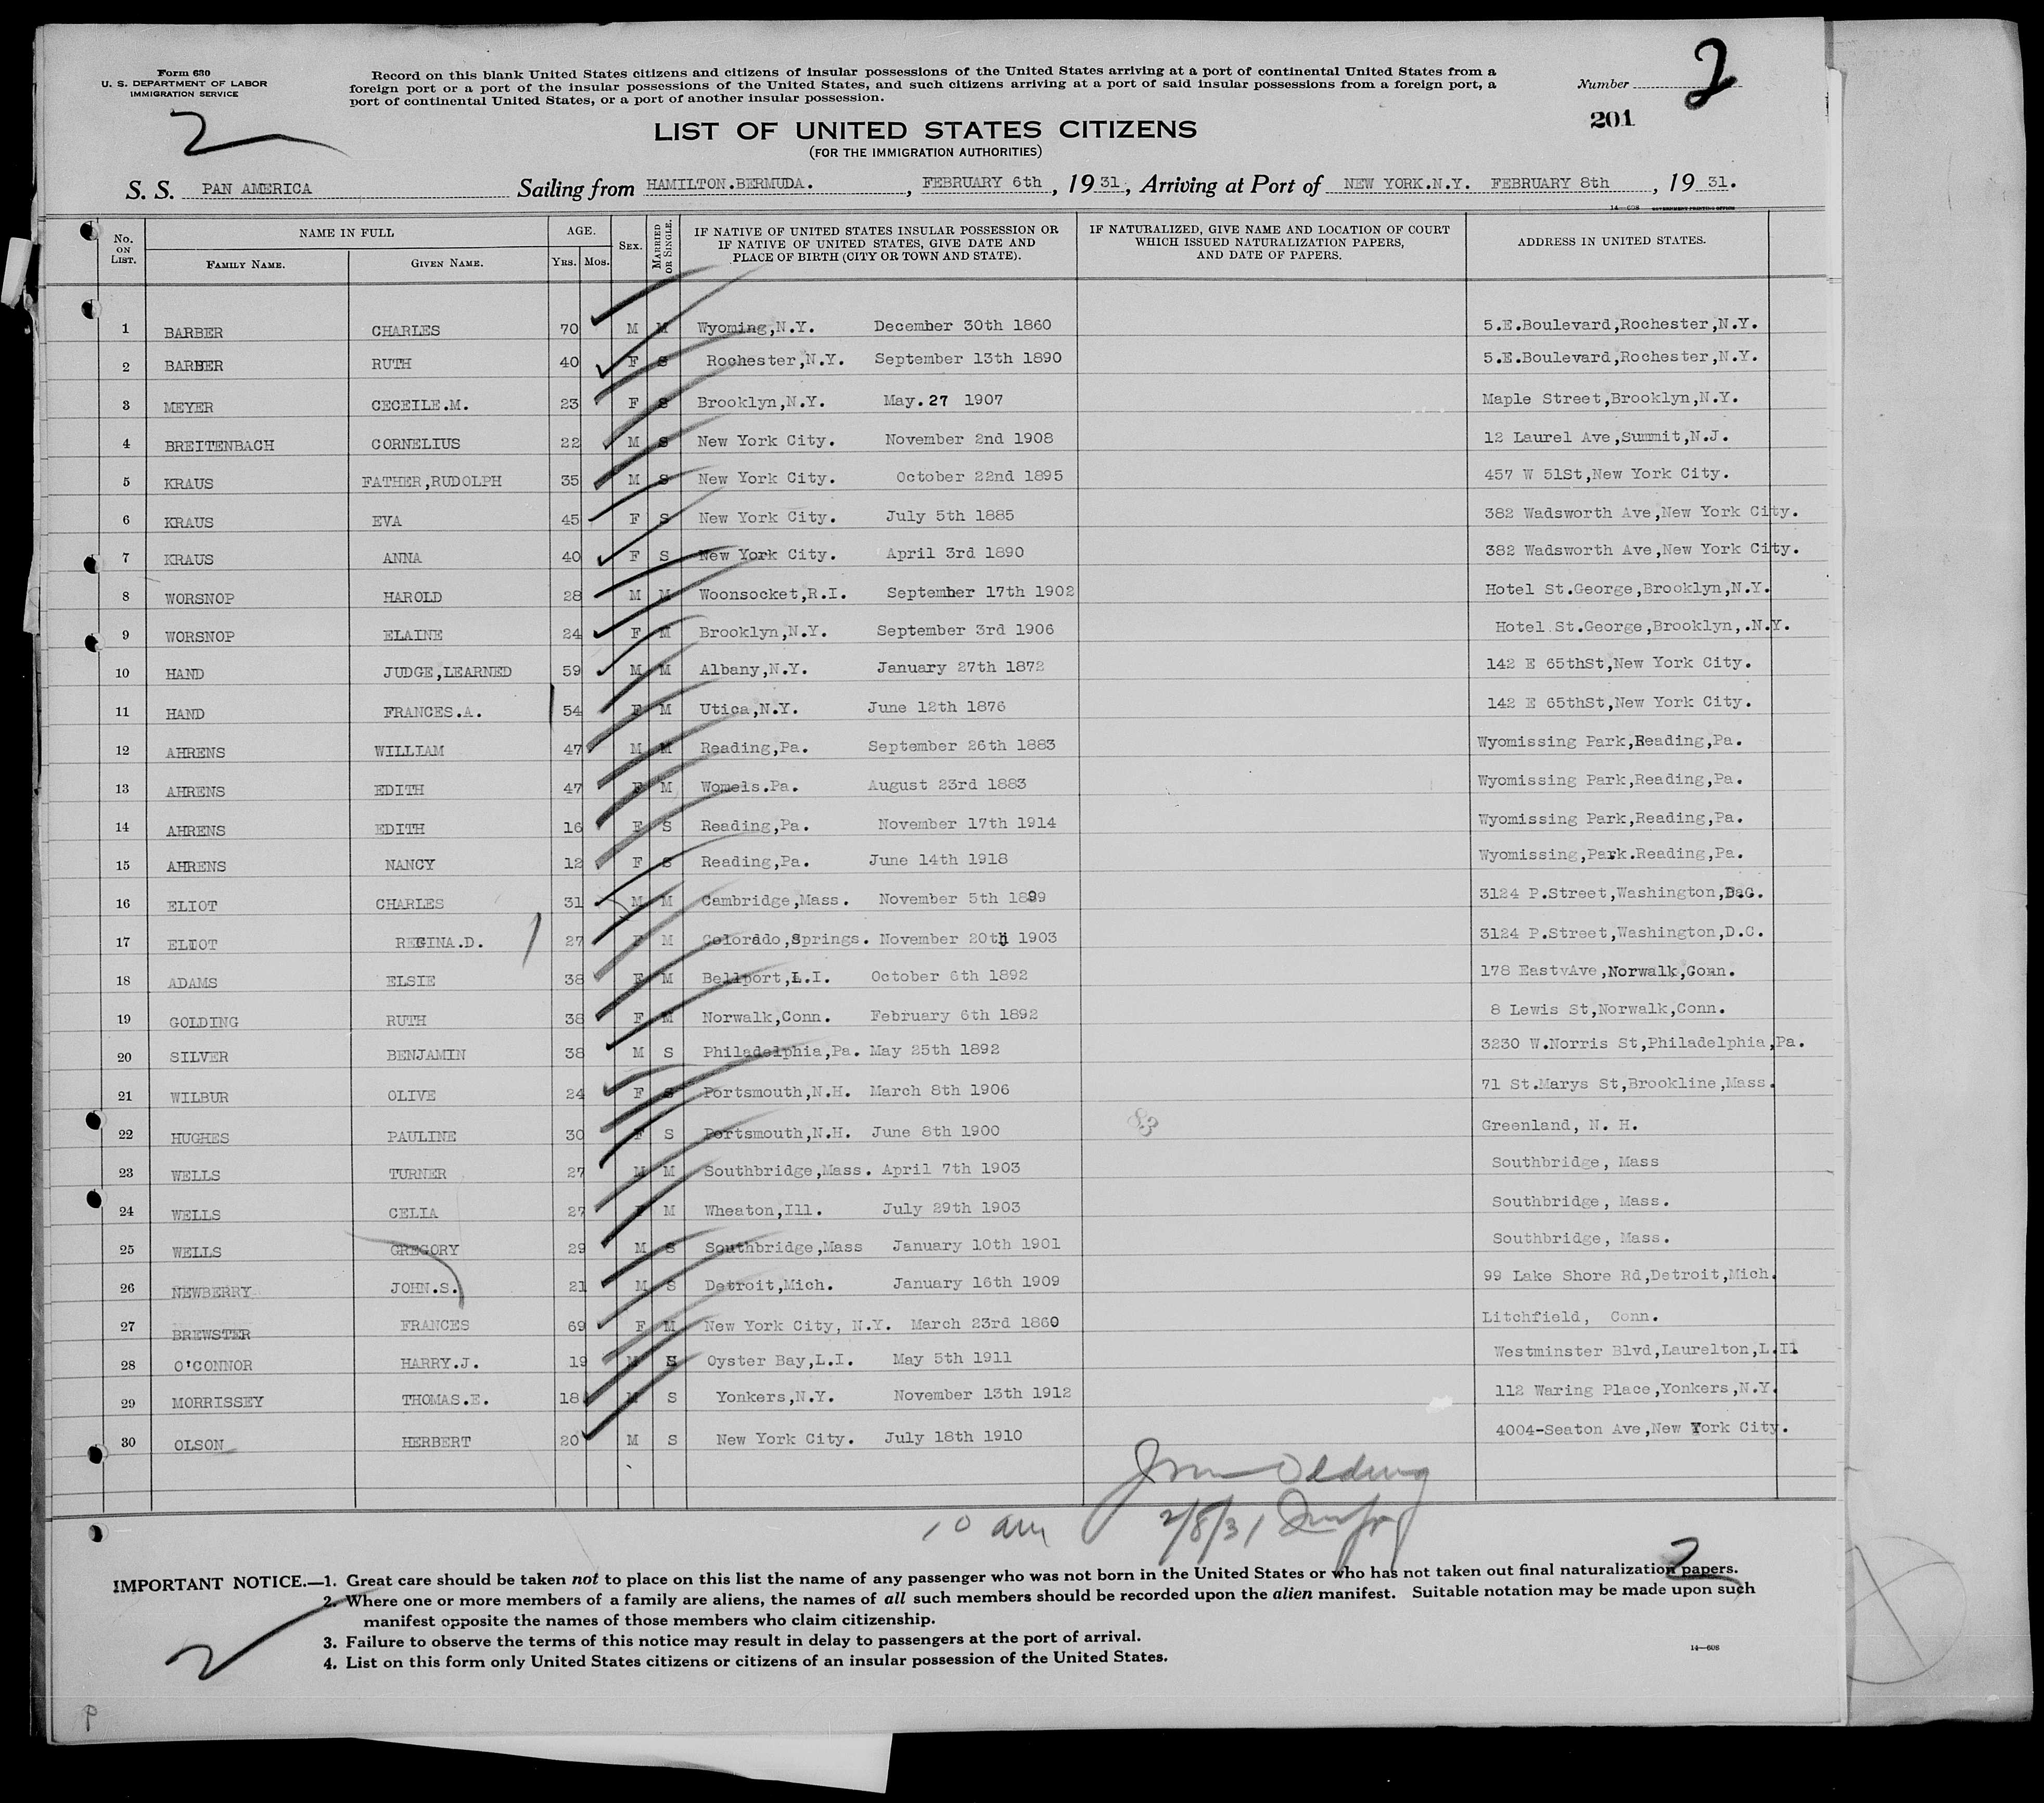 Form 630
U. S. DEPARTMENT OF LABOR
IMMIGRATION SERVICE
Record on this blank United States citizens and citizens of insular possessions of the United States arriving at a port of continental United States from a
foreign port or a port of the insular possessions of the United States, and such citizens arriving at a port of said insular possessions from a foreign port, a
port of continental United States, or a port of another insular possession.
Number 2
201
2
LIST OF UNITED STATES CITIZENS
(FOR THE IMMIGRATION AUTHORITIES)
S. S. PAN AMERICA Sailing from HAMILTON.BERMUDA. , FEBRUARY 6th , 1931., Arriving at Port of NEW YORK.N.Y. FEBRUARY 8th , 1931.
14—608 GOVERNMENT PRINTING OFFICE
No. ON LIST. NAME IN FULL FAMILY NAME. GIVEN NAME. AGE. YRS. MOS. SEX. MARRIED OR SINGLE. IF NATIVE OF UNITED STATES INSULAR POSSESSION OR IF NATIVE OF UNITED STATES, GIVE DATE AND PLACE OF BIRTH (CITY OR TOWN AND STATE). IF NATURALIZED, GIVE NAME AND LOCATION OF COURT WHICH ISSUED NATURALIZATION PAPERS, AND DATE OF PAPERS. ADDRESS IN UNITED STATES.
1 BARBER CHARLES 70 M M Wyoming,N.Y. December 30th 1860 5.E.Boulevard,Rochester,N.Y.
2 BARBER RUTH 40 F S Rochester,N.Y. September 13th 1890 5.E.Boulevard,Rochester,N.Y.
3 MEYER CECEILE.M. 23 F S Brooklyn,N.Y. May.27 1907 Maple Street,Brooklyn,N.Y.
4 BREITENBACH CORNELIUS 22 M S New York City. November 2nd 1908 12 Laurel Ave,Summit,N.J.
5 KRAUS FATHER,RUDOLPH 35 M S New York City. October 22nd 1895 457 W 51St,New York City.
6 KRAUS EVA 45 F S New York City. July 5th 1885 382 Wadsworth Ave,New York City.
7 KRAUS ANNA 40 F S New York City. April 3rd 1890 382 Wadsworth Ave,New York City.
8 WORSNOP HAROLD 28 M M Woonsocket,R.I. September 17th 1902 Hotel St.George,Brooklyn,N.Y.
9 WORSNOP ELAINE 24 F M Brooklyn,N.Y. September 3rd 1906 Hotel.St.George,Brooklyn,.N.Y.
10 HAND JUDGE,LEARNED 59 M M Albany,N.Y. January 27th 1872 142 E 65thSt,New York City.
11 HAND FRANCES.A. 54 F M Utica,N.Y. June 12th 1876 142 E 65thSt,New York City.
12 AHRENS WILLIAM 47 M M Reading,Pa. September 26th 1883 Wyomissing Park,Reading,Pa.
13 AHRENS EDITH 47 F M Womels.Pa. August 23rd 1883 Wyomissing Park,Reading,Pa.
14 AHRENS EDITH 16 F S Reading,Pa. November 17th 1914 Wyomissing Park,Reading,Pa.
15 AHRENS NANCY 12 F S Reading,Pa. June 14th 1918 Wyomissing,Park.Reading,Pa.
16 ELIOT CHARLES 31 M M Cambridge,Mass. November 5th 1899 3124 P.Street,Washington,D.C.
17 ELIOT REGINA.D. 27 F M Colorado,Springs. November 20th 1903 3124 P.Street,Washington,D.C.
18 ADAMS ELSIE 38 F M Bellport,L.I. October 6th 1892 178 EastvAve,Norwalk,Conn.
19 GOLDING RUTH 38 F M Norwalk,Conn. February 6th 1892 8 Lewis St,Norwalk,Conn.
20 SILVER BENJAMIN 38 M S Philadelphia,Pa. May 25th 1892 3230 W.Norris St,Philadelphia,Pa.
21 WILBUR OLIVE 24 F S Portsmouth,N.H. March 8th 1906 71 St.Marys St,Brookline,Mass.
22 HUGHES PAULINE 30 F S Portsmouth,N.H. June 8th 1900 83 Greenland, N. H.
23 WELLS TURNER 27 M M Southbridge,Mass. April 7th 1903 Southbridge, Mass
24 WELLS CELIA 27 F M Wheaton,Ill. July 29th 1903 Southbridge, Mass.
25 WELLS GREGORY 29 M S Southbridge,Mass January 10th 1901 Southbridge, Mass.
26 NEWBERRY JOHN.S. 21 M S Detroit,Mich. January 16th 1909 99 Lake Shore Rd,Detroit,Mich.
27 BREWSTER FRANCES 69 F M New York City, N.Y. March 23rd 1860 Litchfield, Conn.
28 O'CONNOR HARRY.J. 19 M S Oyster Bay,L.I. May 5th 1911 Westminster Blvd,Laurelton,L.I.
29 MORRISSEY THOMAS.E. 18 M S Yonkers,N.Y. November 13th 1912 112 Waring Place,Yonkers,N.Y.
30 OLSON HERBERT 20 M S New York City. July 18th 1910 4004-Seaton Ave,New York City.
10 am 2/8/31
2
IMPORTANT NOTICE.—1. Great care should be taken not to place on this list the name of any passenger who was not born in the United States or who has not taken out final naturalization papers.
2. Where one or more members of a family are aliens, the names of all such members should be recorded upon the alien manifest. Suitable notation may be made upon such
manifest opposite the names of those members who claim citizenship.
3. Failure to observe the terms of this notice may result in delay to passengers at the port of arrival.
4. List on this form only United States citizens or citizens of an insular possession of the United States.
14—608
2
P